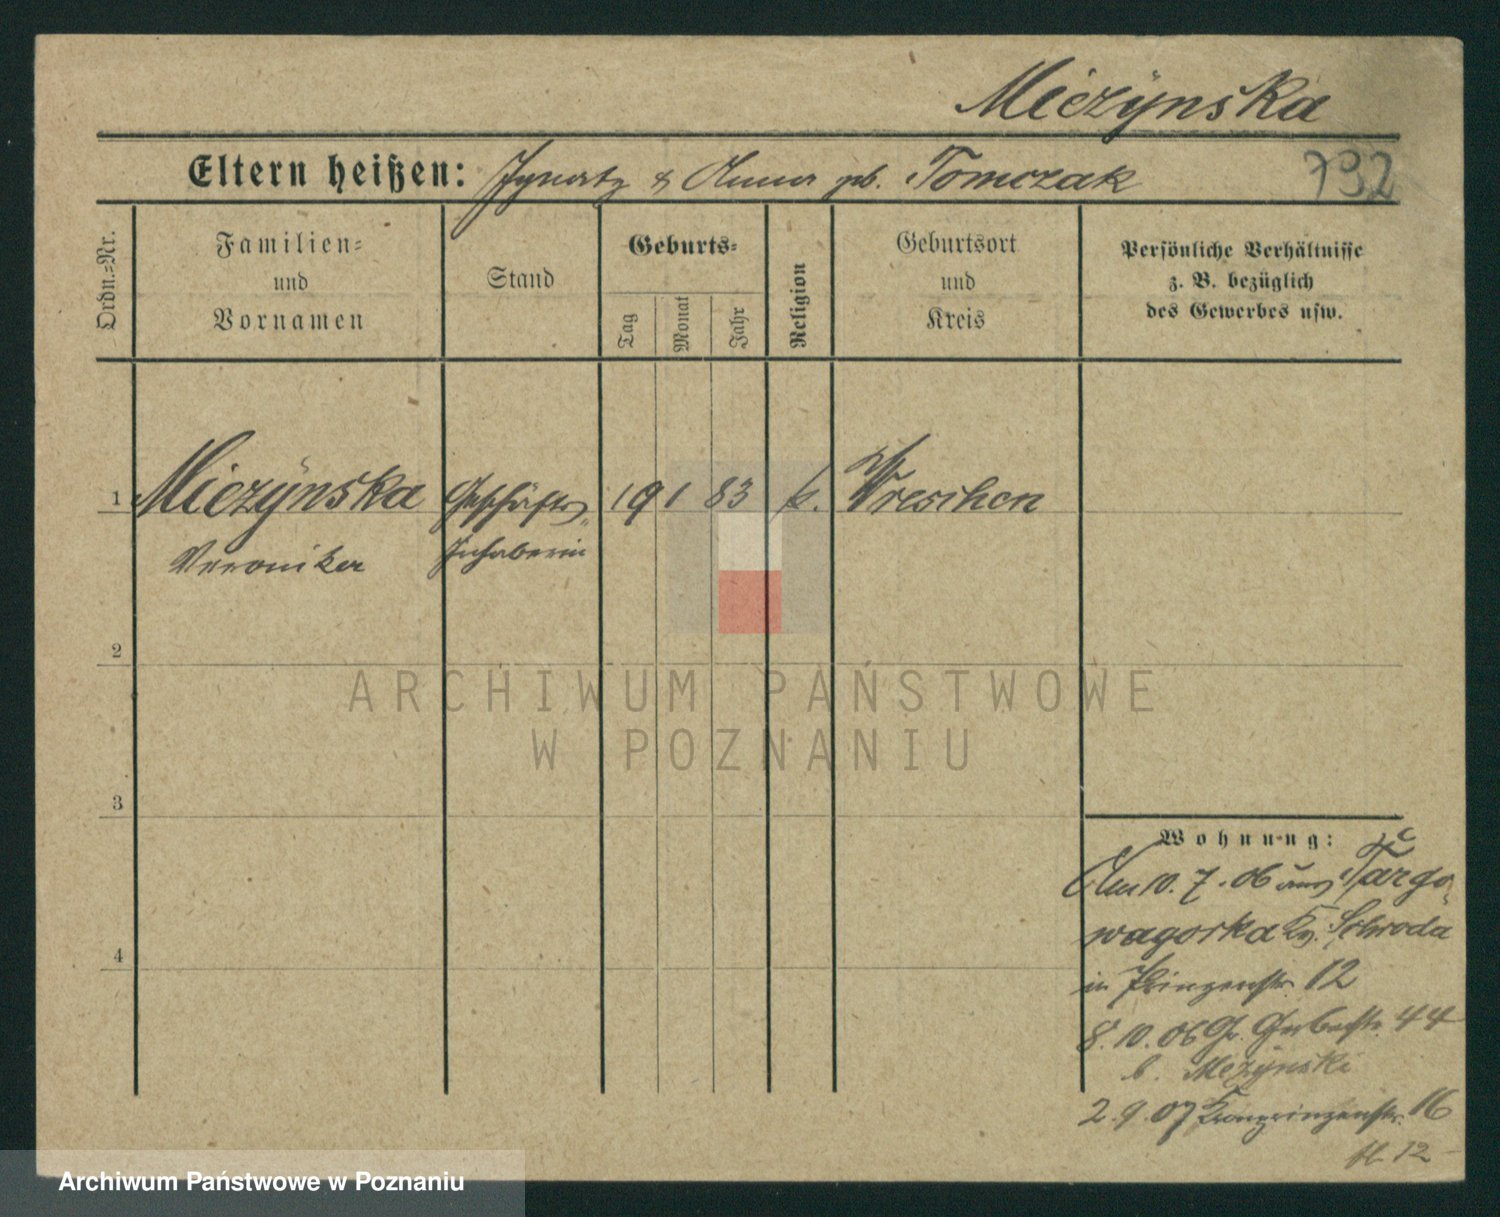 Miezÿnska
Eltern heißen: Ignatz & Anna geb. Tomczak 732
Ordn.=Nr.
Familien= und Vornamen
Stand
Geburts=
Tag
Monat
Jahr
Religion
Geburtsort und Kreis
Persönliche Verhältnisse
z. B. bezüglich
des Gewerbes usw.
1 Miezÿnska Geschäfts= 19 1 83 k. Wreschen
Veronika Inhaberin
2
ARCHIWUM PAŃSTWOWE
W POZNANIU
3
Wohnung:
Am 10. 7. 06 aus Targo=
wagorka Kr. Schroda
in Prinzenstr. 12
8. 10. 06 Gr. Gerberstr. 44
b. Mezÿnski
2. 9. 07 Kronprinzenstr. 16
4
H. 12
Archiwum Państwowe w Poznaniu